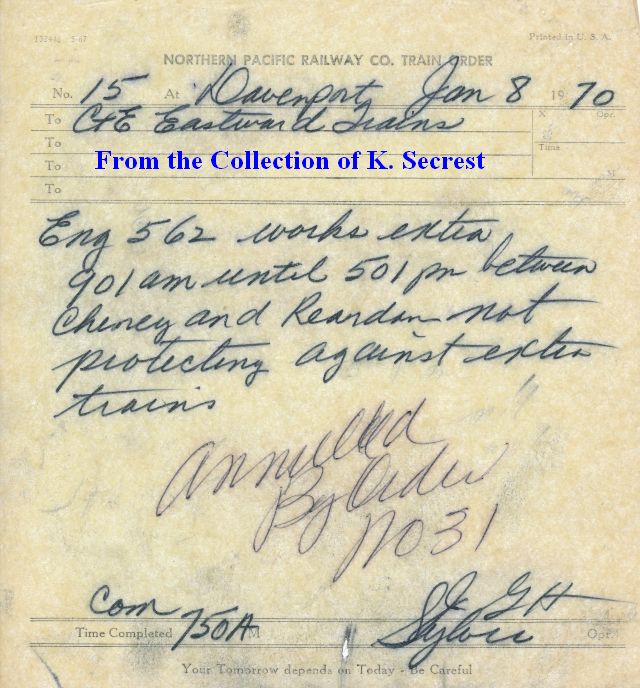 5-67
Printed in U. S. A.
NORTHERN PACIFIC RAILWAY CO. TRAIN ORDER
No. 15 At Davenport Jan 8 1970
To C&E Eastward Trains
X Opr.
To
Time
To From the Collection of K. Secrest
M
To
Eng 562 works extra
901 am until 501 pm between
Cheney and Reardan not
protecting against extra
trains
Annulled
By Order
No 31
Com
Time Completed 750A M
GH
Opr.
Your Tomorrow depends on Today - Be Careful